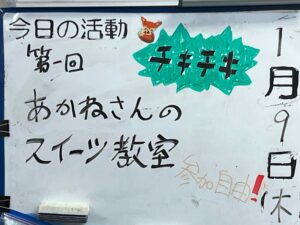 今日の活動
第一回
チキチキ
あかねさんの
スイーツ教室
参加自由!
1月9日木